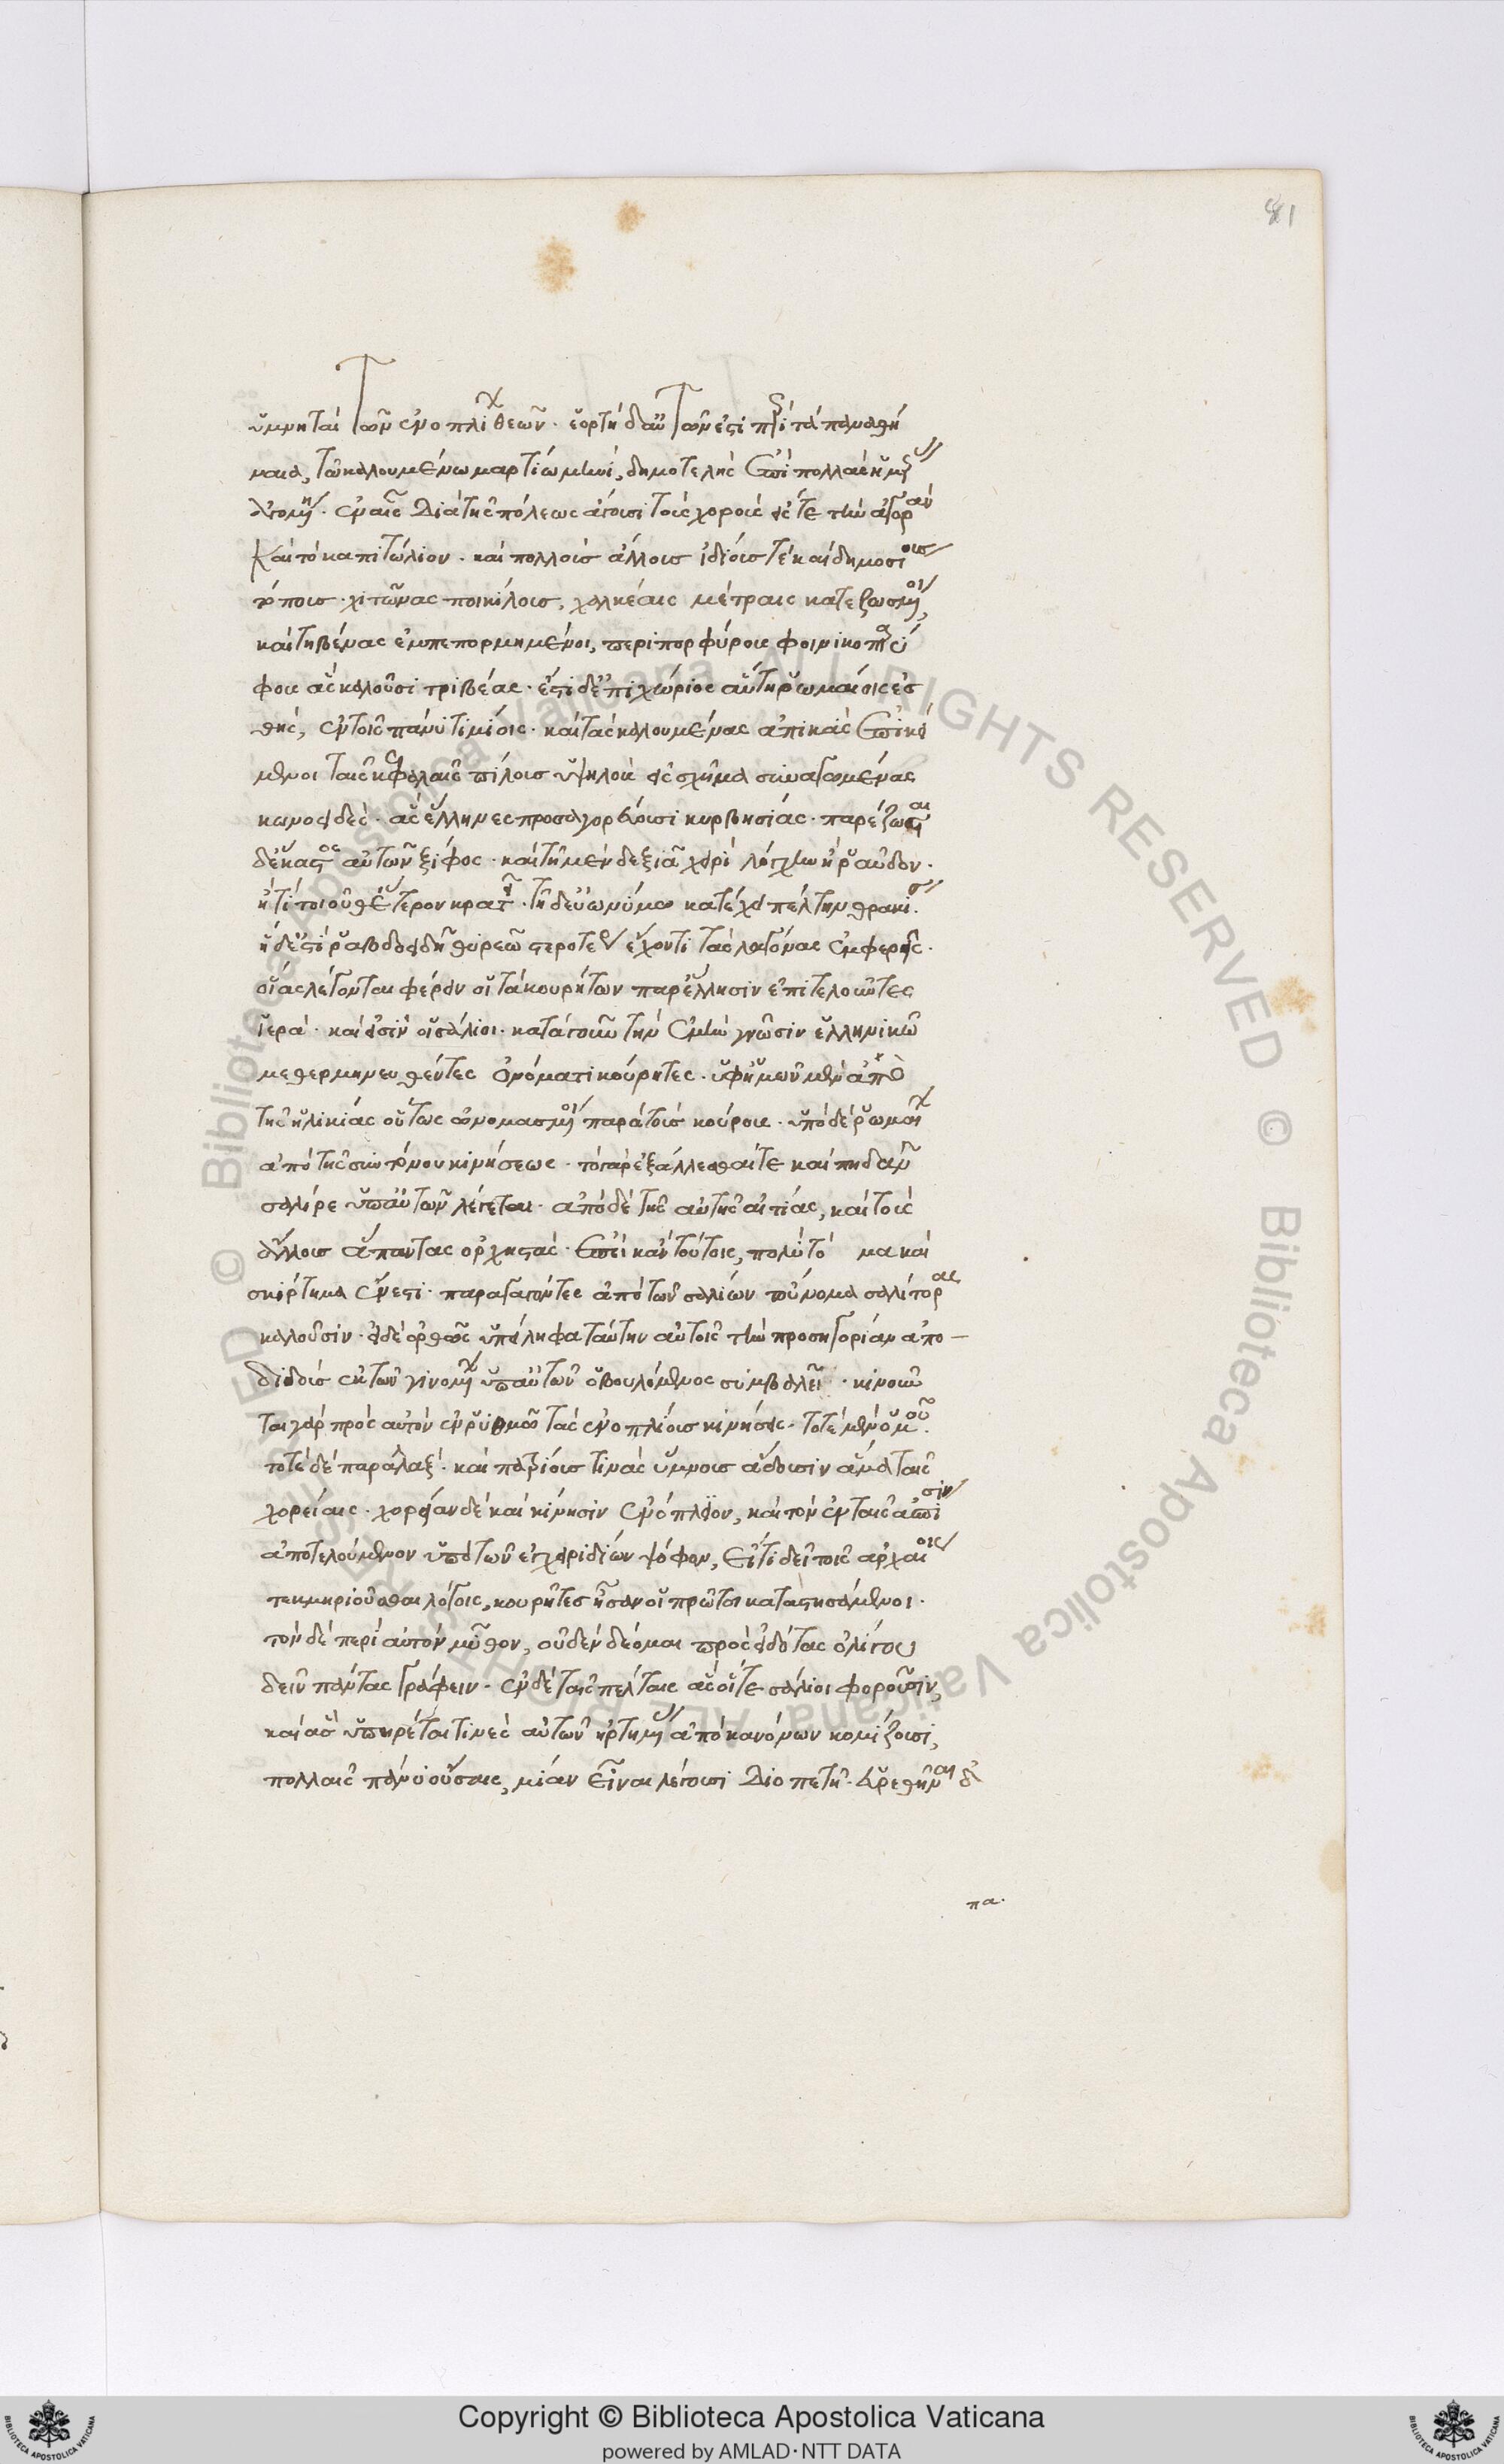 81
ὑμνηταὶ τῶν ἐνοπλίων θεῶν· ἑορτὴ δ' αὐτῶν ἐστι περὶ τὰ παναθή
ναια, τῷ καλουμένῳ μαρτίῳ μηνί, δημοτελὴς ἐπὶ πολλὰς ἡμέρας
ἀγομένη· ἐν αἷς διὰ τῆς πόλεως ἄγουσι τοὺς χοροὺς εἴς τε τὴν ἀγορὰν
καὶ τὸ καπιτώλιον· καὶ πολλοὺς ἄλλους ἰδίους τὲ καὶ δημοσίους
τόπους· χιτῶνας ποικίλους, χαλκέαις μίτραις κατεζωσμένοι,
καὶ τηβέννας ἐμπεπορπημένοι, περιπορφύρους φοινικοπαρύ
φους ἃς καλοῦσι τριβέας· ἔστι δ' ἐπιχώριος αὕτη ῥωμαίοις ἐσ
θὴς, ἐν τοῖς πάνυ τιμίοις· καὶ τὰς καλουμένας ἀπικὰς ἐπικεί
μενοι ταῖς κεφαλαῖς πίλους ὑψηλοὺς εἰς σχῆμα συναγομένας
κωνοειδές· ἃς ἕλληνες προσαγορεύουσι κυρβησίας· παρέζωσται
δ' ἕκαστος αὐτῶν ξίφος· καὶ τῇ μὲν δεξιᾷ χειρὶ λόγχην ἢ ῥαύδον·
ἤ τι τοιοῦθ' ἕτερον κρατεῖ· τῇ δ' εὐωνύμῳ κατέχει πέλτην θρακίαν·
ἡ δ' ἐστὶ ῥαβδοειδῆ θυρεῷ στενοτέρας ἔχοντι τὰς λαγόνας ἐμφερής·
οἵας λέγονται φέρειν οἱ τὰ κουρήτων παρ' ἕλλησιν ἐπιτελοῦντες
ἱερά· καὶ εἰσὶν οἱ σάλιοι· κατὰ γοῦν τὴν ἐμὴν γνῶσιν ἑλληνικῷ
μεθερμηνευθέντες ὀνόματι κούρητες· ὑφ' ἡμῶν μὲν ἀπὸ
τῆς ἡλικίας οὕτως ὠνομασμένοι παρὰ τοὺς κούρους· ὑπὸ δὲ ῥωμαίων
ἀπὸ τῆς συντόνου κινήσεως· τὸ γὰρ ἐξάλλεσθαί τε καὶ πηδᾶν
σαλίρε ὑπ' αὐτῶν λέγεται· ἀπὸ δὲ τῆς αὐτῆς αἰτίας, καὶ τοὺς
ἄλλους ἅπαντας ὀρχηστάς· ἐπεὶ κἀν τούτοις, πολὺ τὸ μα καὶ
σκίρτημα ἔνεστι· παραγαγόντες ἀπὸ τῶν σαλίων τοὔνομα σαλίτορας
καλοῦσιν· εἰ δὲ ὀρθῶς ὑπείληφα ταύτην αὐτοῖς τὴν προσηγορίαν ἀπο-
διδοὺς ἐκ τῶν γινομένων ὑπ' αὐτῶν ὁ βουλόμενος συμβαλεῖ· κινοῦν
ται γὰρ πρὸς αὐτὸν ἐν ῥυθμῷ τὰς ἐνοπλίους κινήσεις· τοτὲ μὲν ὁμοῦ·
τοτὲ δὲ παραλλάξ· καὶ πατρίους τινὰς ὕμνους ᾄδουσιν ἅμα ταῖς
χορείαις· χορείαν δὲ καὶ κίνησιν ἐνόπλιον, καὶ τὸν ἐν ταῖς ἀσπίσιν
ἀποτελούμενον ὑπὸ τῶν ἐγχειριδίων ψόφον, εἴ τι δεῖ τοῖς ἀρχαίοις
τεκμηριοῦσθαι λόγοις, κουρῆτες ἦσαν οἱ πρῶτοι καταστησάμενοι·
τὸν δὲ περὶ αὐτὸν μῦθον, οὐδὲν δέομαι πρὸς εἰδότας ὀλίγου
δεῖν πάντας γράφειν· ἐν δὲ ταῖς πέλταις ἃς οἵ τε σάλιοι φοροῦσιν,
καὶ ἃς ὑπηρέται τινὲς αὐτῶν ἠρτημένας ἀπὸ κανόνων κομίζουσι,
πολλαῖς πάνυ οὔσαις, μίαν εἶναι λέγουσι διοπετῆ· εὑρεθῆναι δ'
πα·
© Biblioteca Apostolica Vaticana ALL RIGHTS RESERVED © Biblioteca Apostolica Vaticana ALL RIGHTS RESERVED
Copyright © Biblioteca Apostolica Vaticana
powered by AMLAD·NTT DATA
BIBLIOTECA APOSTOLICA VATICANA
BIBLIOTECA APOSTOLICA VATICANA